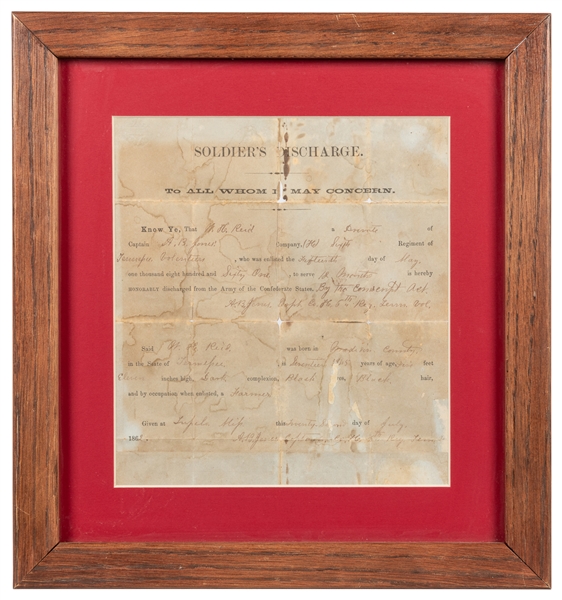 SOLDIER'S DISCHARGE.
TO ALL WHOM IT MAY CONCERN.
Know Ye, That Reid a of
Captain Jones Company, Sixth Regiment of
Tennessee Volunteers, who was enlisted the fifteenth day of May
one thousand eight hundred and Sixty One, to serve is hereby
HONORABLY discharged from the Army of the Confederate States. By the Conscript Act.
Jones Capt Co 6th Reg Tenn Vol
Said Reid, was born in County,
in the State of Tennessee, is years of age, feet
inches high, Dark complexion, Black eyes, Black hair,
and by occupation when enlisted, a Farmer
Given at Tupelo Miss this day of July
186 Tenn